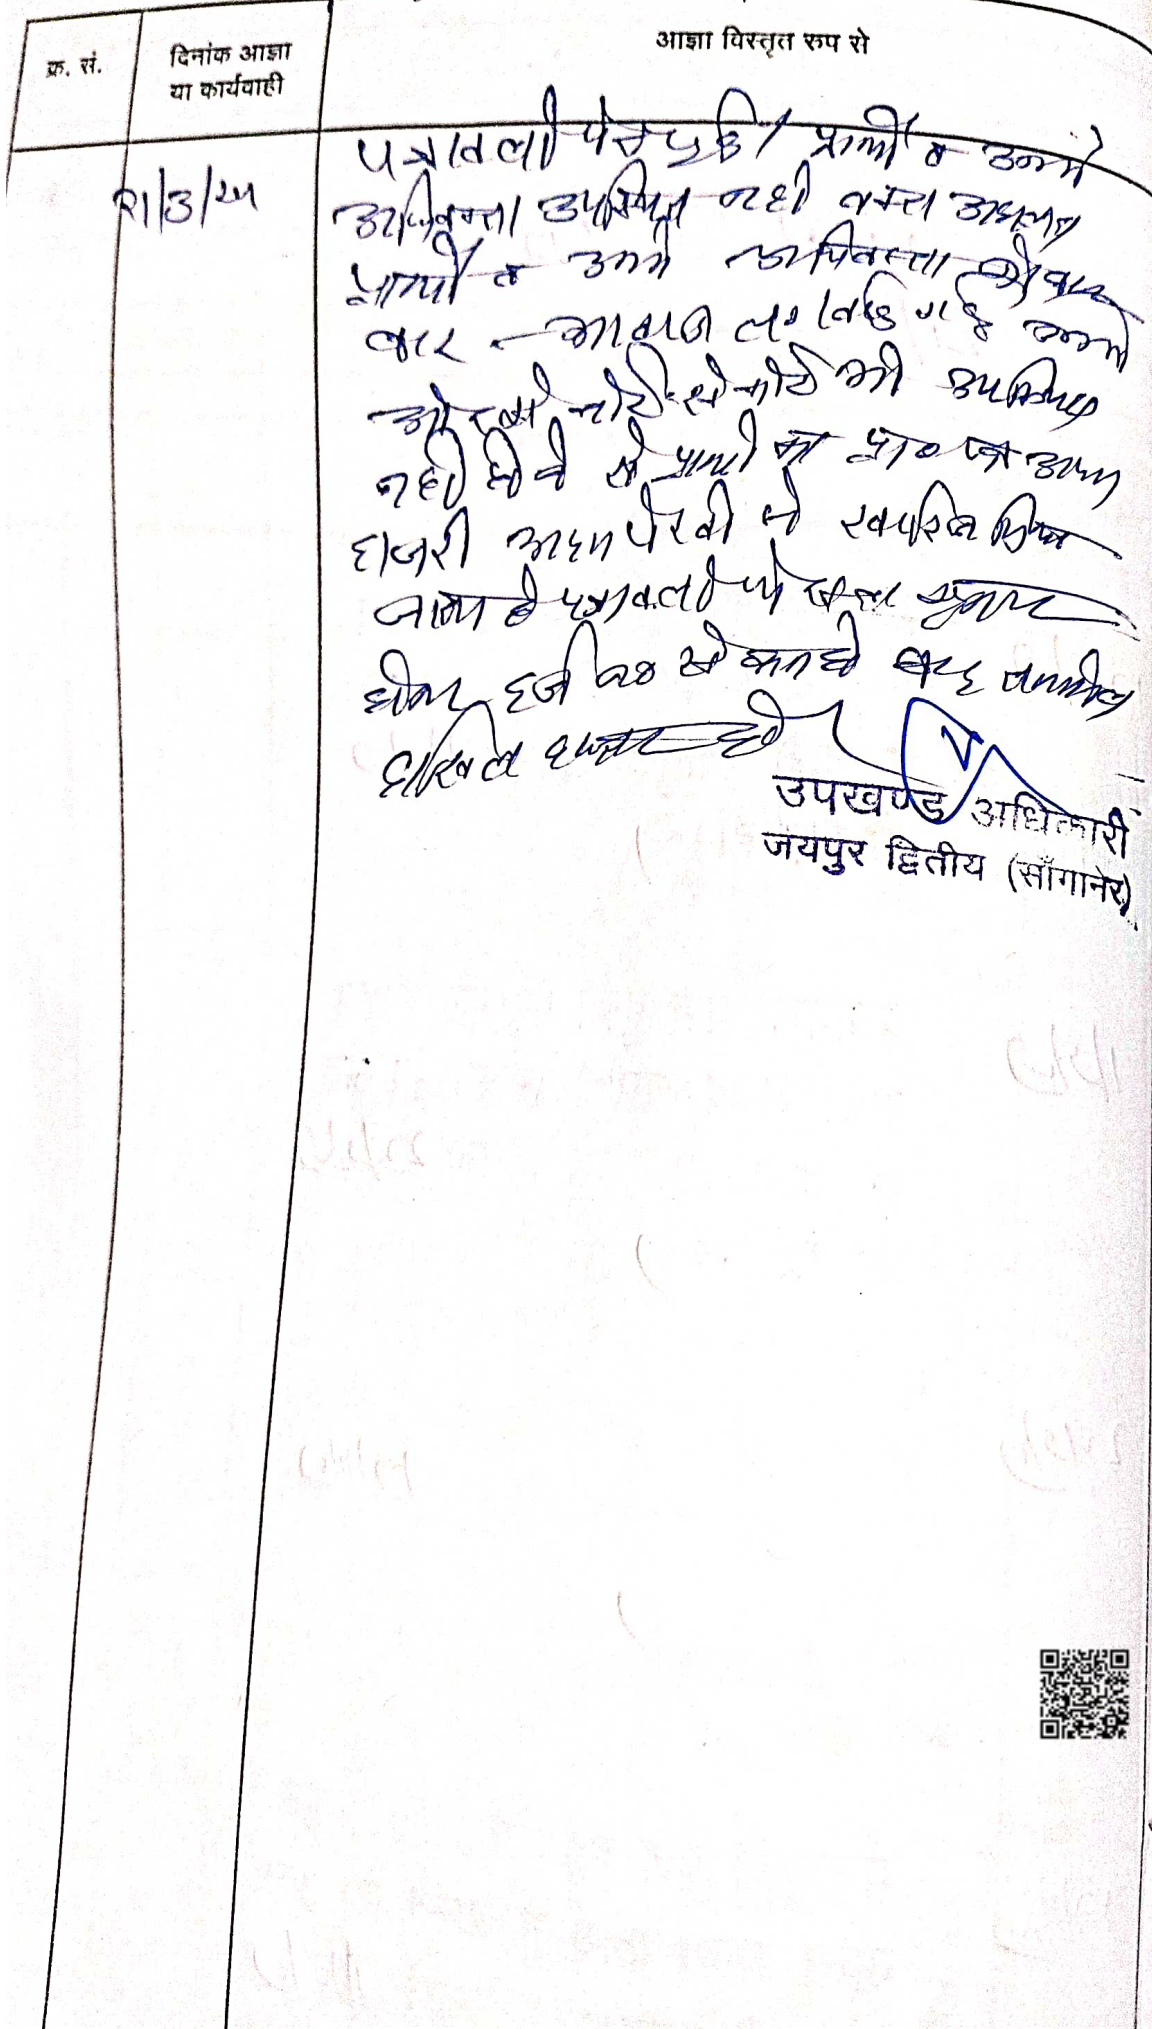 क्र. सं.
दिनांक आज्ञा
या कार्यवाही
आज्ञा विस्तृत रुप से
पत्रावली पेश हुई। प्रार्थी व उनके
अधिवक्ता उपस्थित नही वक्त
प्रार्थी व उनके अधिवक्ता को बार
बार आवाज लगवाई गई उनकी
ओर से कोई भी उपस्थित
नही होने से प्रार्थी का प्रा० पत्र अदम
हाजरी अदम पैरवी मे खारिज किया
जाता है पत्रावली फैसल शुमार
होकर दर्ज न० से कम हो बाद तकमील
दाखिल दफ्तर हो
उपखण्ड अधिकारी
जयपुर द्वितीय (साँगानेर)